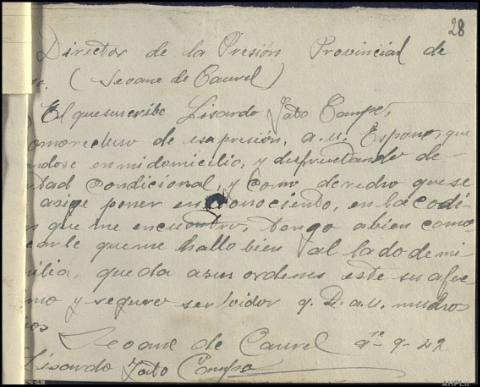 28
Director de la Presión Provincial de
(Seoane de Caurel)
El que suscribe Lisardo Tato Campo,
reso de esa presión, a.u. Espone, que
ndose en mi domicilio, y disfrutando de
tad condicional, y como deredro que se
asige poner en conociento, en la codi
n que me encuentro, tengo a bien como
carle que me hallo bien al lado de mi
ilia, queda a sus ordenes este su afte
mo y seguro servidor q. D. a u. mudros
Seoane de Caurel 9 42
Lisardo Tato Campo